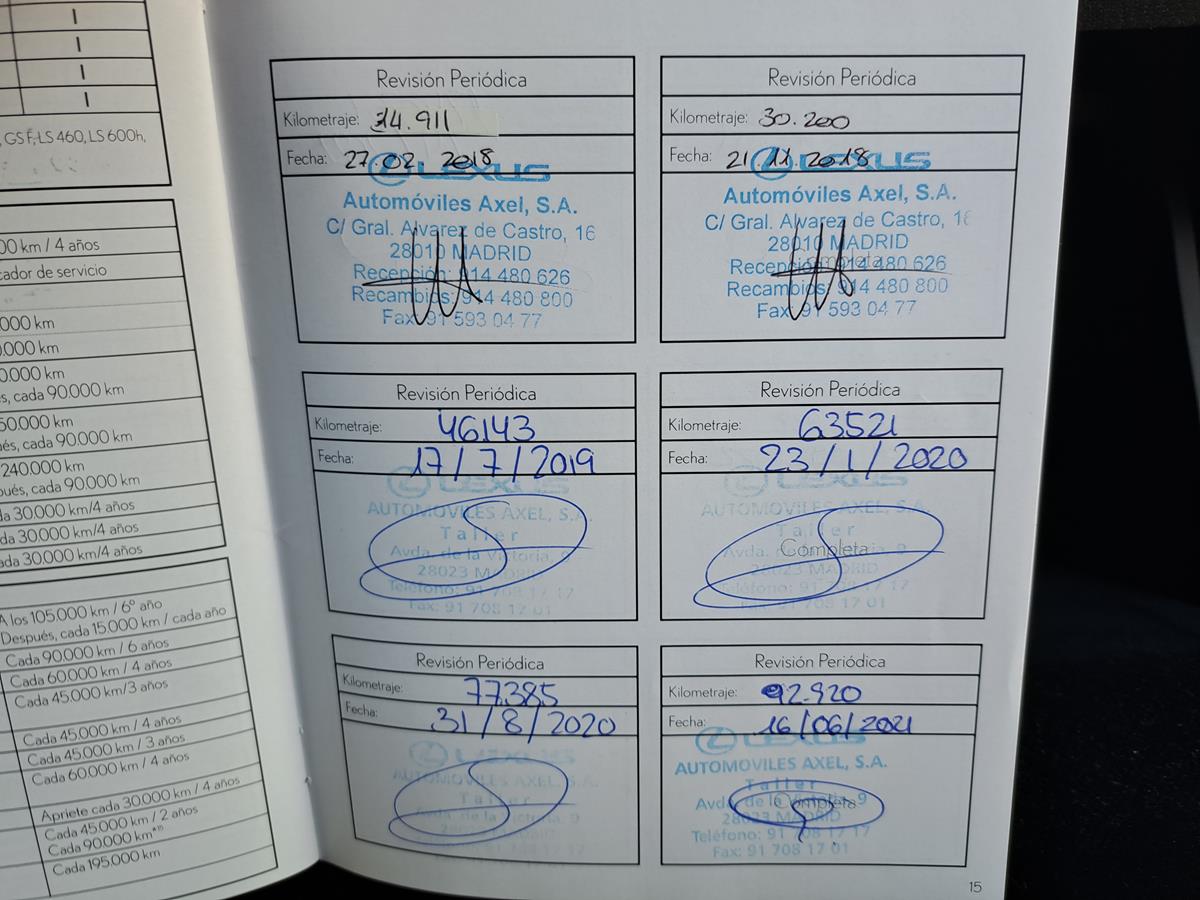 I
I
I
I
, GS F, LS 460, LS 600h,
00 km / 4 años
cador de servicio
000 km
0.000 km
0.000 km
s, cada 90.000 km
50.000 km
ués, cada 90.000 km
240.000 km
pués, cada 90.000 km
da 30.000 km/4 años
ada 30.000 km/4 años
ada 30.000 km/4 años
A los 105.000 km / 6º año
Después, cada 15.000 km / cada año
Cada 90.000 km / 6 años
Cada 60.000 km / 4 años
Cada 45.000 km/3 años
Cada 45.000 km / 4 años
Cada 45.000 km / 3 años
Cada 60.000 km / 4 años
Apriete cada 30.000 km / 4 años
Cada 45.000 km / 2 años
Cada 90.000 km
Cada 195.000 km
Revisión Periódica
Kilometraje: 14.911
Fecha: 27 02 2018
LEXUS
Automóviles Axel, S.A.
C/ Gral. Alvarez de Castro, 16
28010 MADRID
Recepción: 914 480 626
Recambios: 914 480 800
Fax: 91 593 04 77
Revisión Periódica
Kilometraje: 30.200
Fecha: 21.11.2018
LEXUS
Automóviles Axel, S.A.
C/ Gral. Alvarez de Castro, 16
28010 MADRID
Completa
Recepción: 914 480 626
Recambios: 914 480 800
Fax: 91 593 04 77
Revisión Periódica
Kilometraje: 46143
Fecha: 17/7/2019
LEXUS
AUTOMOVILES AXEL, S.A.
Taller
Avda. de la Victoria, 9
28023 MADRID
Teléfono: 91 708 17 17
Fax: 91 708 17 01
Revisión Periódica
Kilometraje: 63521
Fecha: 23/1/2020
LEXUS
AUTOMOVILES AXEL, S.A.
Taller
Avda. de la Victoria, 9
Completa
28023 MADRID
Teléfono: 91 708 17 17
Fax: 91 708 17 01
Revisión Periódica
Kilometraje: 77385
Fecha: 31/8/2020
LEXUS
AUTOMOVILES AXEL, S.A.
Taller
Avda. de la Victoria, 9
28023 MADRID
Revisión Periódica
Kilometraje: 92.920
Fecha: 16/06/2021
LEXUS
AUTOMOVILES AXEL, S.A.
Taller
Avda. de la Victoria, 9
Completa
28023 MADRID
Teléfono: 91 708 17 17
Fax: 91 708 17 01
15